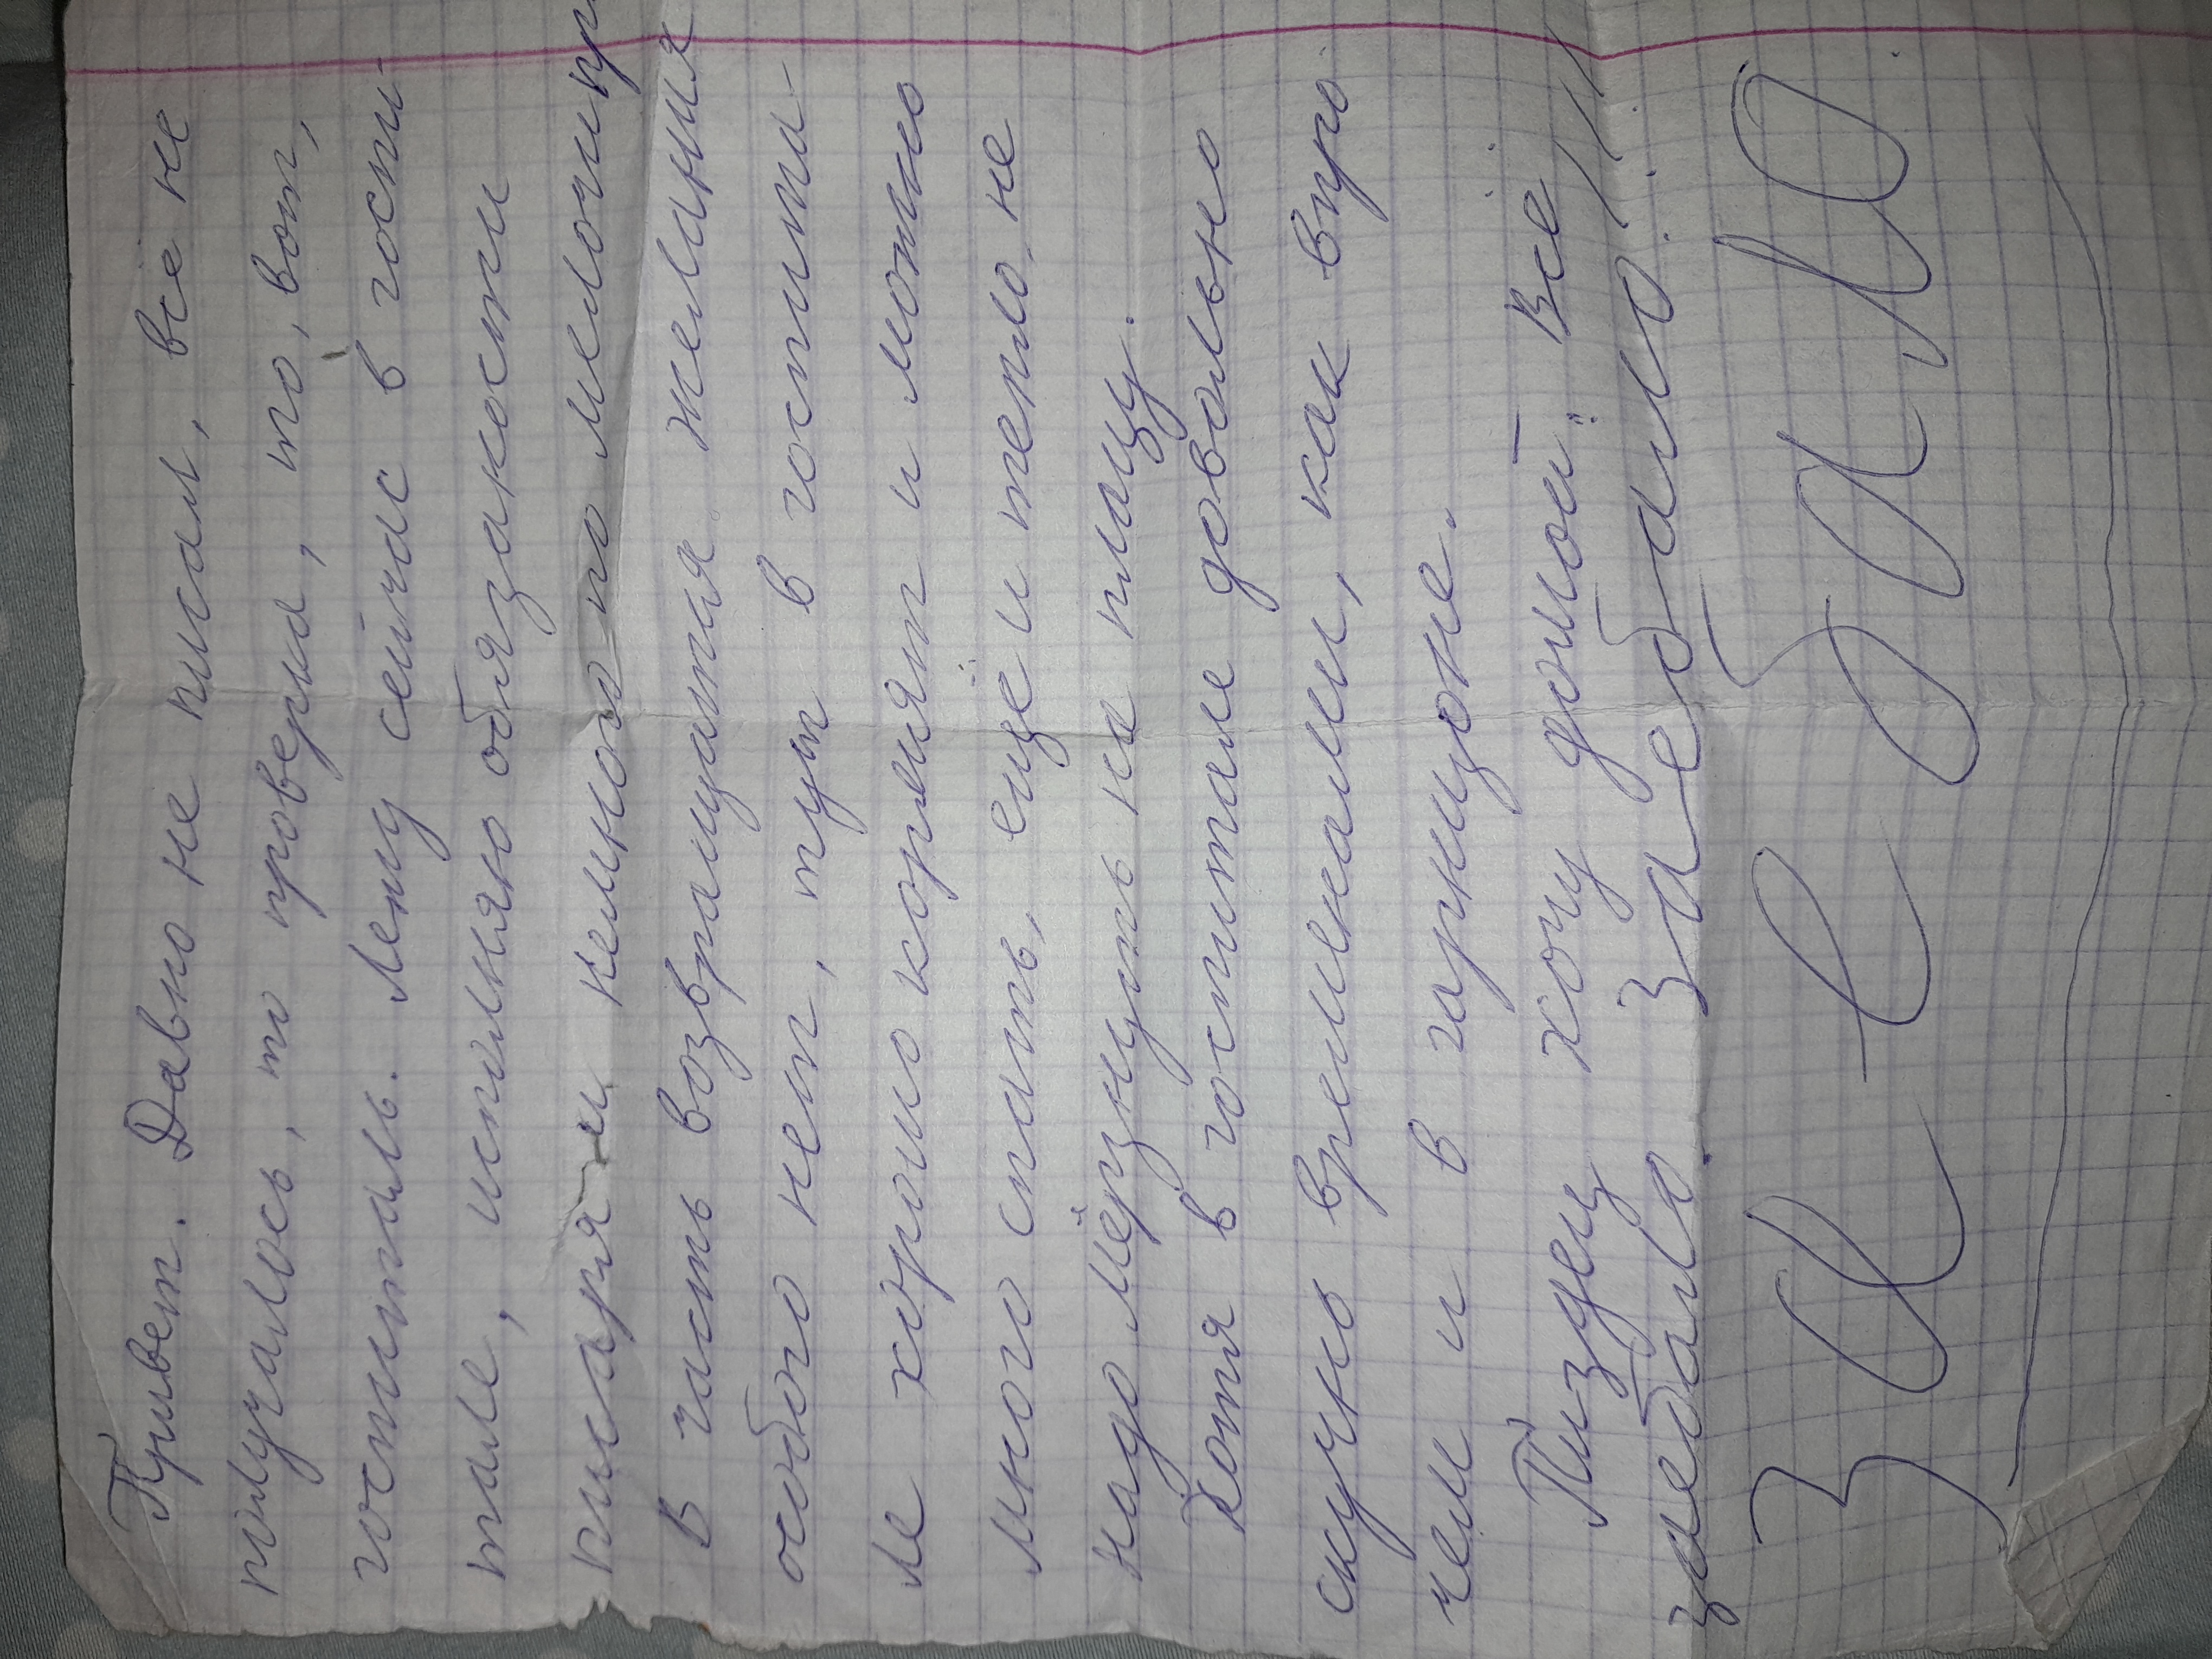 Привет. Давно не писал, всё не
получалось, то проверка, то, вот,
госпиталь. Лежу сейчас в госпи-
тале, исполняю обязанности
писаря и немного по мелочи пр
В часть возвращатся желания
особого нет, тут в госпита-
ле хорошо кормят и можно
много спать, ещё и тепло, не
надо мёрзнуть на плацу.
Хотя в госпитале довольно
скучно временами, как впро
чем и в гарнизоне.
Пиздец хочу домой! Всё
заебало Заебало!!!
ЗАЕБАЛО